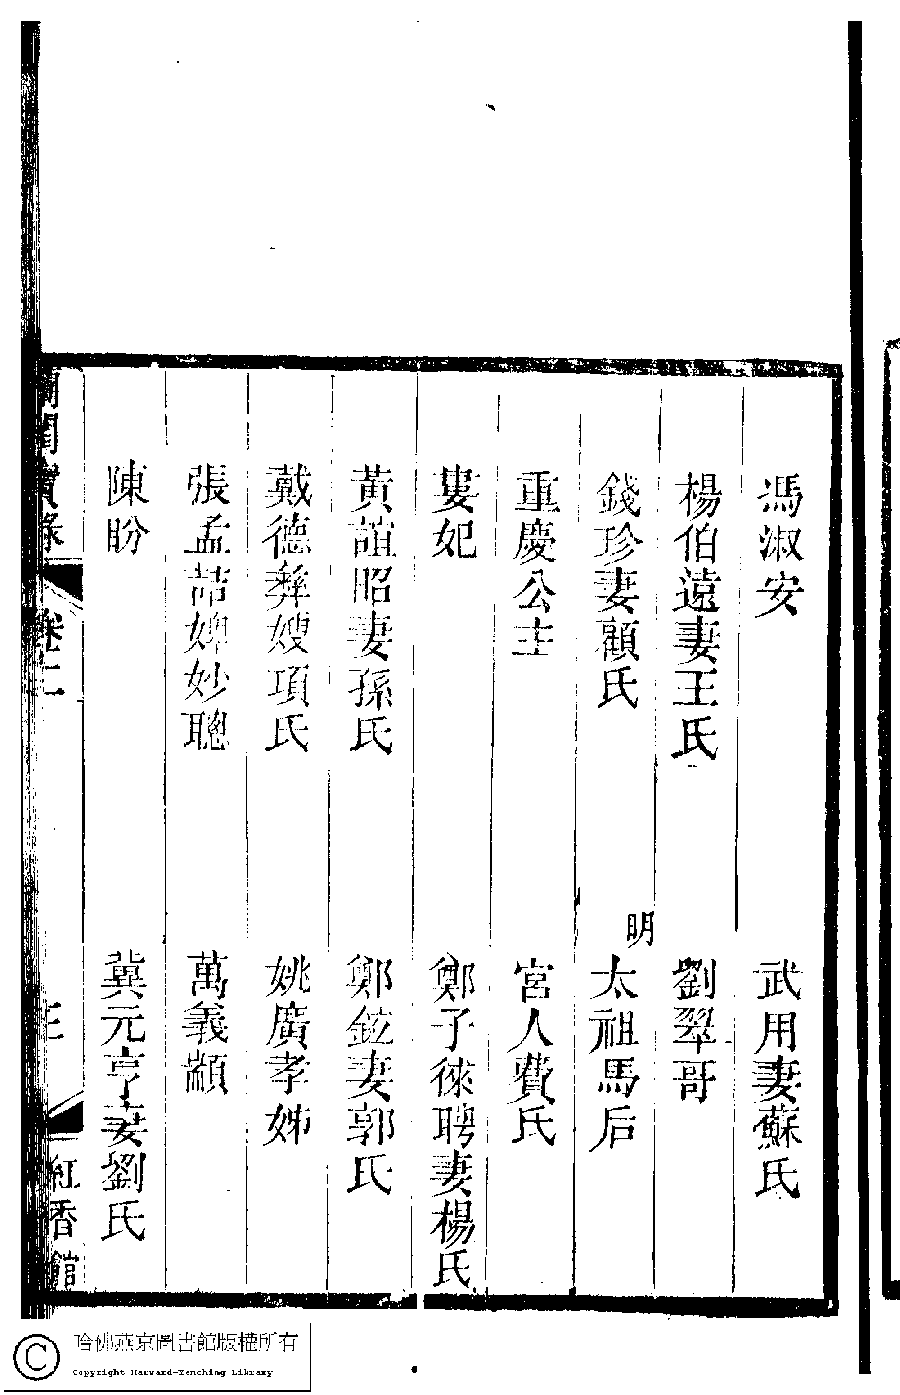 馮淑安　武用妻蘇氏
楊伯遠妻王氏　劉翠哥
錢珍妻顧氏　明　太祖馬后
重慶公主　宮人費氏
婁妃　鄭子徠聘妻楊氏
黃誼昭妻孫氏　鄭鉉妻郭氏
戴德彝嫂項氏　姚廣孝姊
張孟喆婢妙聰　萬義顓
陳盼　冀元亨妻劉氏
蘭閨寶錄　卷二　三　紅香館
哈佛燕京圖書館版權所有
Copyright Harvard-Yenching Library